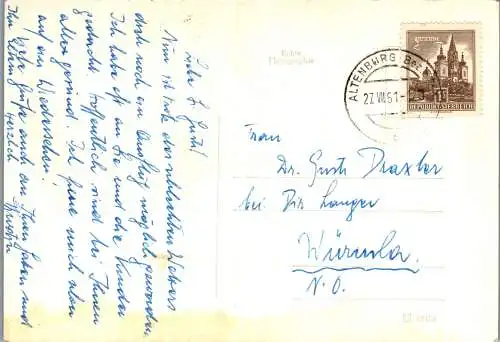 Liebe Fr. Gusti!
Nun ist trotz des schlechten Wetters
doch noch ein Ausflug möglich geworden.
Ich habe oft an Sie und die Kinder
gedacht. Hoffentlich sind bei Ihnen
alle gesund. Ich freue mich schon
auf ein Wiedersehen.
Viele Grüße auch an Ihren
und
Ihr
herzlich
Echte
Photographie
ALTENBURG Bez.
27.VII.61
REPUBLIK ÖSTERREICH
Frau
Dr. Gusti Draxler
bei Dir. Langer
Würmla.
N.Ö.